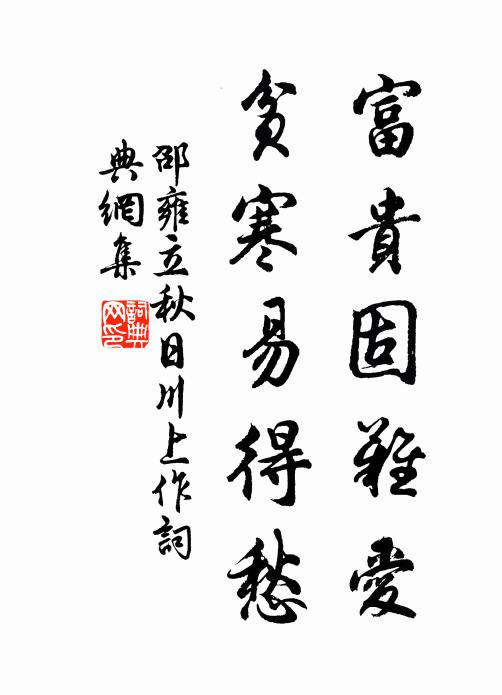 富貴固難愛
貧寒易得愁
邵雍立秋日川上作詞
典網集
詞典網印